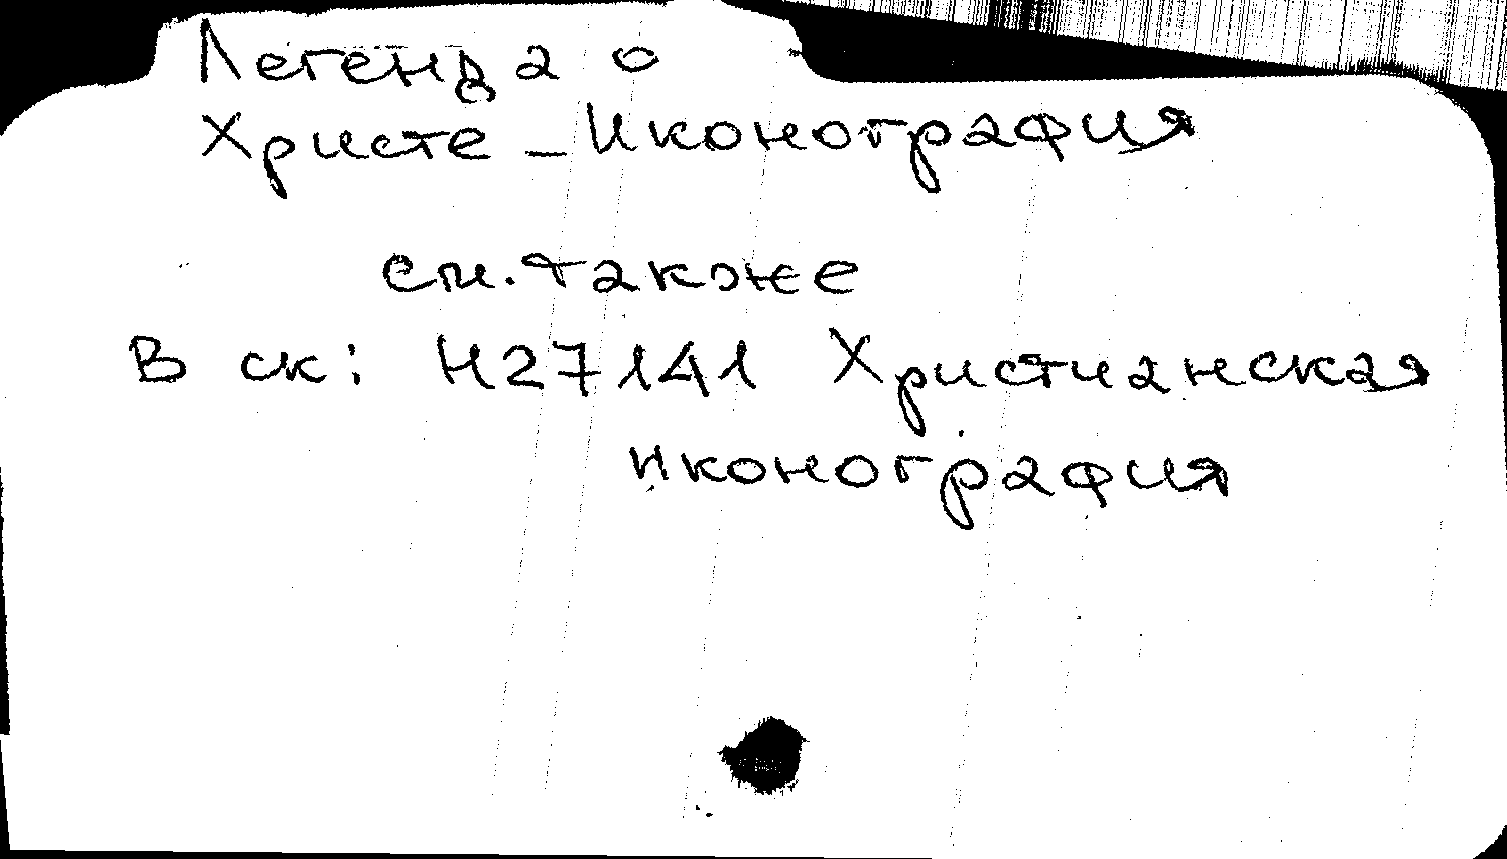 Легенда о
Христе - Иконография
см. также
В ск: Н27141 Христианская
иконография